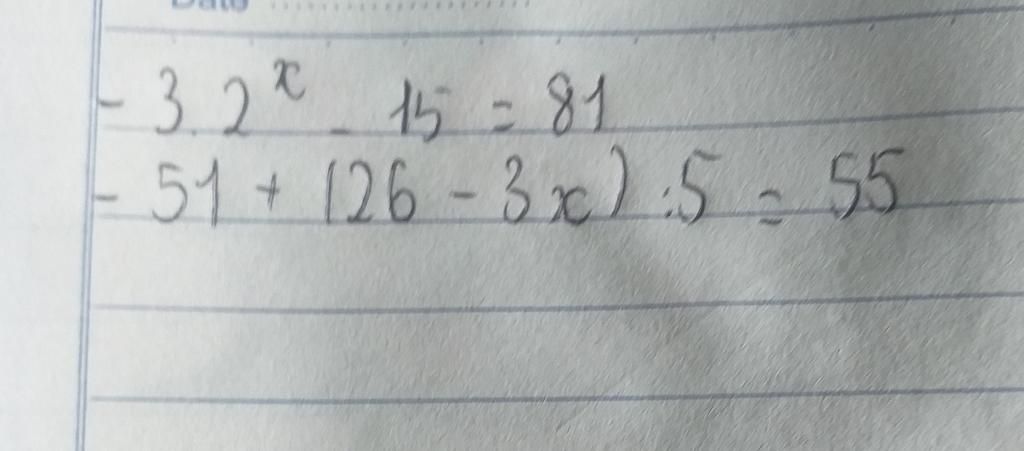 Date
- 3.2ˣ - 15 = 81
- 51 + (26 - 3x) : 5 = 55